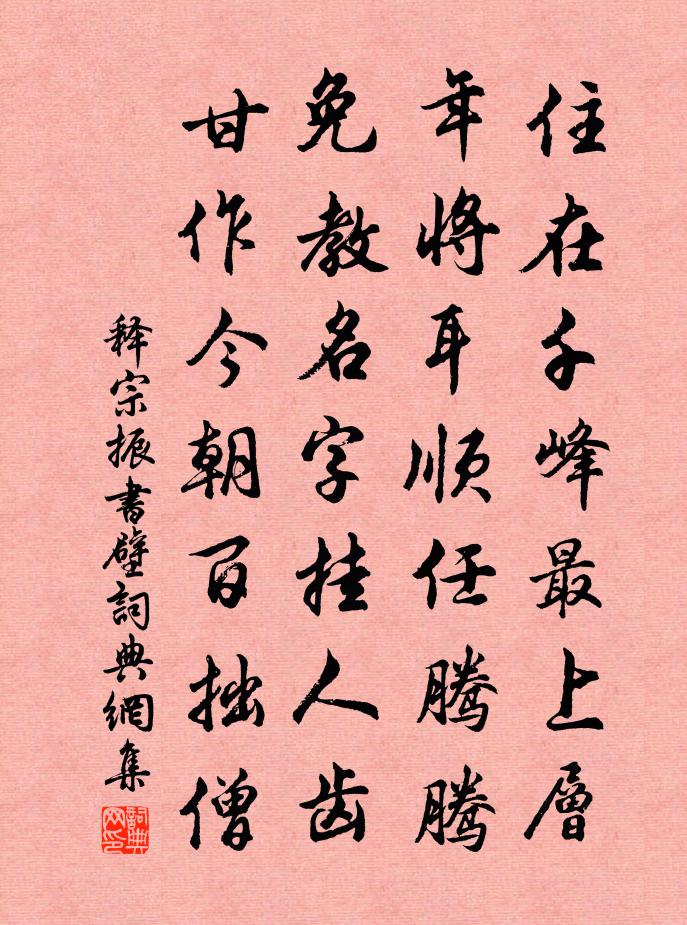 住在千峰最上層
年將耳順任腾腾
免教名字挂人齿
甘作今朝百拙僧
释宗振書壁詞典網集
詞典网印